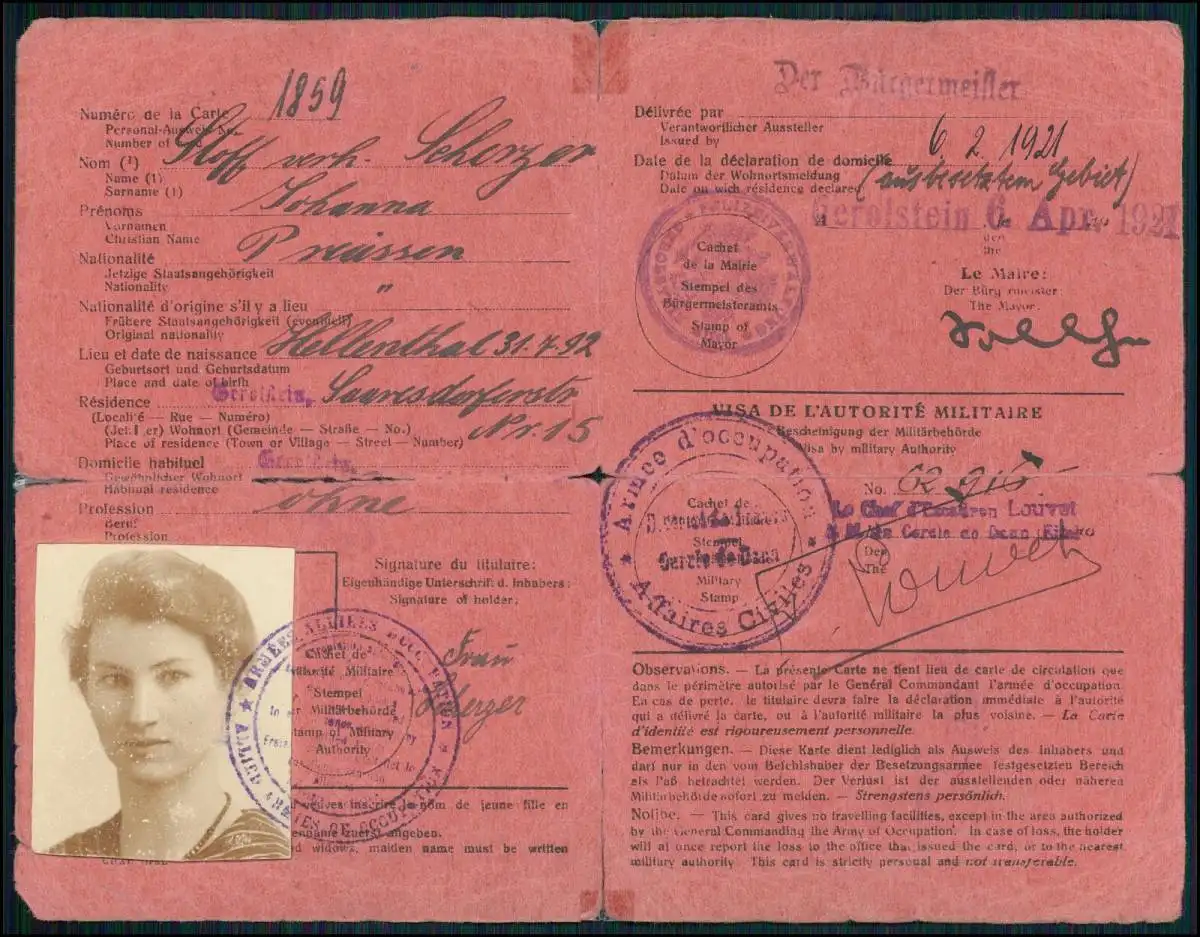 Numéro de la Carte 1859
Personal-Ausweis No.
Number of
Nom (¹) Stoff verh. Scherzer
Name (1)
Surname (1)
Prénoms Johanna
Vornamen
Christian Name
Nationalité Preussen
Jetzige Staatsangehörigkeit
Nationality
Nationalité d'origine s'il y a lieu "
Frühere Staatsangehörigkeit (eventuell)
Original nationality
Lieu et date de naissance Hellenthal 31.7.92
Geburtsort und Geburtsdatum
Place and date of birth
Résidence Gerolstein, Nr. 15
(Localité — Rue — Numéro)
(Jetziger) Wohnort (Gemeinde — Straße — No.)
Place of residence (Town or Village — Street — Number)
Domicile habituel Gerolstein,
Gewöhnlicher Wohnort
Habitual residence
Profession ohne
Beruf
Profession
Signature du titulaire:
Eigenhändige Unterschrift d. Inhabers:
Signature of holder:
Frau
Scherzer
ARMÉES ALLIÉES D'OCCUPATION
ALLIED ARMIES OF OCCUPATION
Cachet de
Militaire
Stempel
Militärbehörde
Stamp of Military
Authority
veuves inscrire le nom de jeune fille en
zuerst angeben.
widows, maiden name must be written
Der Bürgermeister
Délivrée par
Verantwortlicher Aussteller
Issued by
Date de la déclaration de domicile 6. 2. 1921
Datum der Wohnortsmeldung
Date on wich résidence declared (aus besetztem Gebiet)
Gerolstein 6. Apr. 1921
den
the
Cachet
de la Mairie
Stempel des
Bürgermeisteramts
Stamp of
Mayor
Le Maire:
Der Bürgermeister:
The Mayor:
VISA DE L'AUTORITÉ MILITAIRE
Bescheinigung der Militärbehörde
Visa by military Authority
No.
Armée d'occupation
Affaires Civiles
Cachet de
Stempel
Military
Stamp
Le Chef d'Escadron Louvet
Cercle de Daun
Der
The
Observations. — La présente Carte ne tient lieu de carte de circulation que
dans le périmètre autorisé par le Général Commandant l'armée d'occupation.
En cas de perte, le titulaire devra faire la déclaration immédiate à l'autorité
qui a délivré la carte, ou à l'autorité militaire la plus voisine. — La Carte
d'identité est rigoureusement personnelle.
Bemerkungen. — Diese Karte dient lediglich als Ausweis des Inhabers und
darf nur in den vom Befehlshaber der Besetzungsarmee festgesetzten Bereich
als Paß betrachtet werden. Der Verlust ist der ausstellenden oder näheren
Militärbehörde sofort zu melden. — Strengstens persönlich.
Notice. — This card gives no travelling facilities, except in the area authorized
by the General Commanding the Army of Occupation. In case of loss, the holder
will at once report the loss to the office that issued the card, or to the nearest
military authority. This card is strictly personal and not transferable.